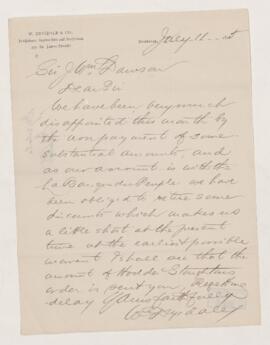 W. DRYSDALE & CO.,
July 11
Sir J Wm Dawson
Dear Sir
We have been very much
disappointed this month by
the non payment of some
substantial amounts, and
as our amount is with the
La Banque du Peuple we have
been obliged to retire some
discounts which makes us
a little short at the present
time at the earliest possible
moment I shall see that the
amount of Hodder Stoughtons
order is sent you,
delay Yours faithfully
Wm Drysdale